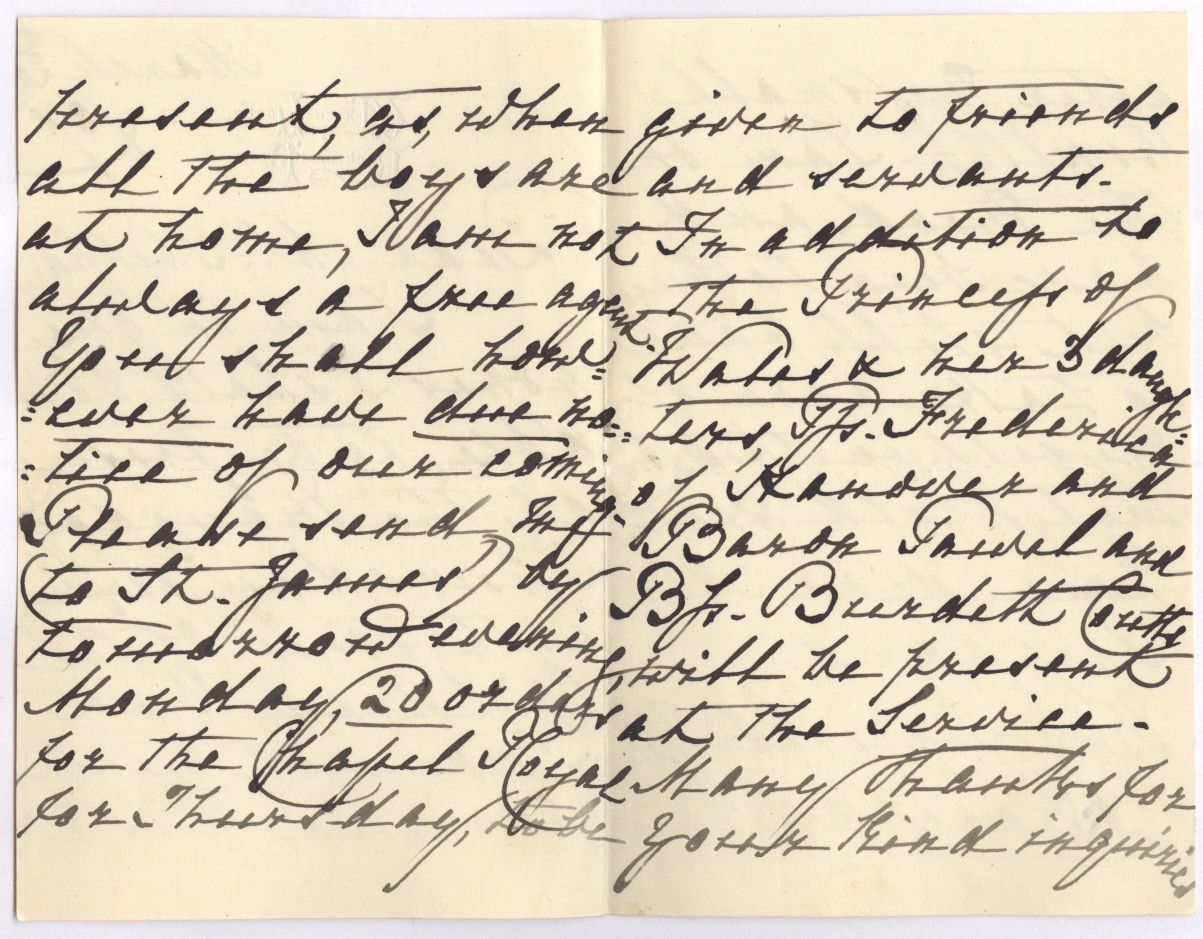 present, as, when
all the boys are
at home, I am not
always a free agent.
You shall how=
=ever have due no=
=tice of our coming.
Please send me
(to St. James) by
tomorrow evening,
Monday, 20 orders
for the Chapel Royal
for Thursday, to be
given to friends
and servants.
In addition to
the Princess of
Wales & her 3 daugh=
=ters, Pss. Frederica
of Hanover and
Baron Pawel and
Bss. Burdett Coutts
will be present
at the Service.
Many thanks for
your kind inquiries